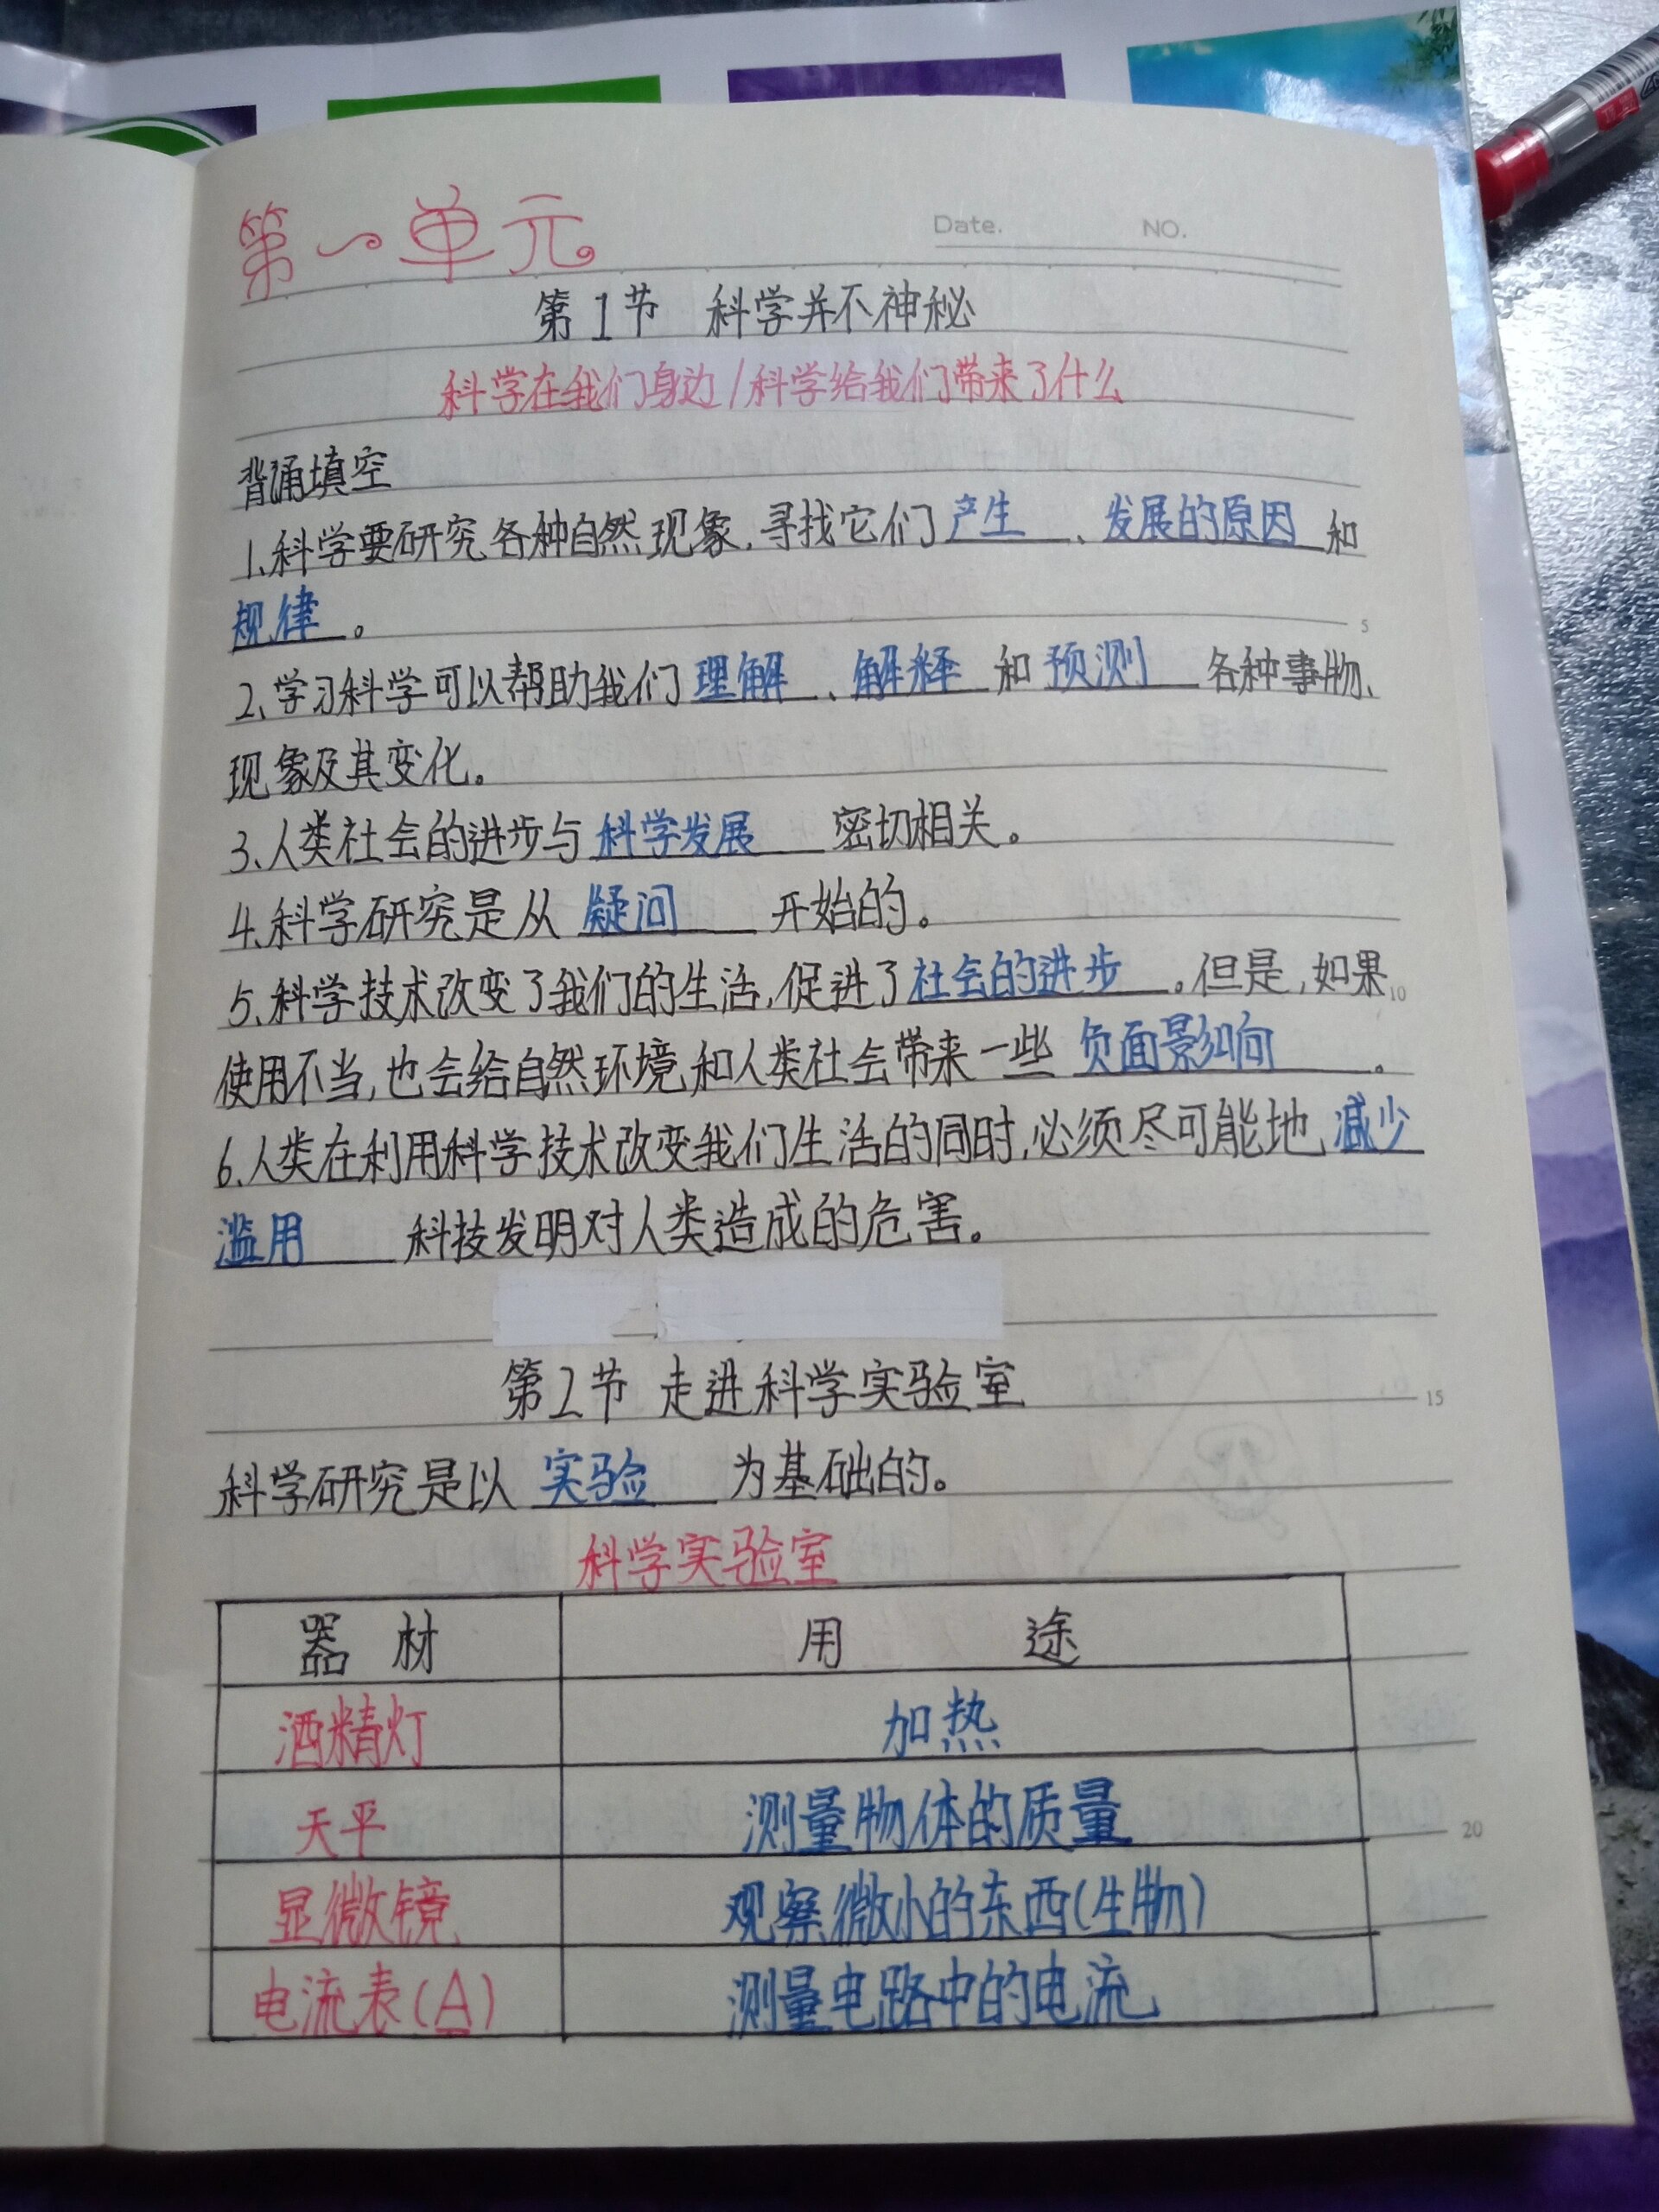 第一单元
Date. NO.
第1节 科学并不神秘
科学在我们身边/科学给我们带来了什么
背诵填空
1、科学要研究各种自然现象,寻找它们产生、发展的原因和
规律。
5
2、学习科学可以帮助我们理解、解释和预测各种事物、
现象及其变化。
3、人类社会的进步与科学发展密切相关。
4、科学研究是从疑问开始的。
5、科学技术改变了我们的生活,促进了社会的进步。但是,如果
10
使用不当,也会给自然环境和人类社会带来一些负面影响。
6、人类在利用科学技术改变我们生活的同时,必须尽可能地减少
滥用科技发明对人类造成的危害。
第2节 走进科学实验室
15
科学研究是以实验为基础的。
科学实验室
器材 用途
酒精灯 加热
天平 测量物体的质量
20
显微镜 观察微小的东西(生物)
电流表(A) 测量电路中的电流